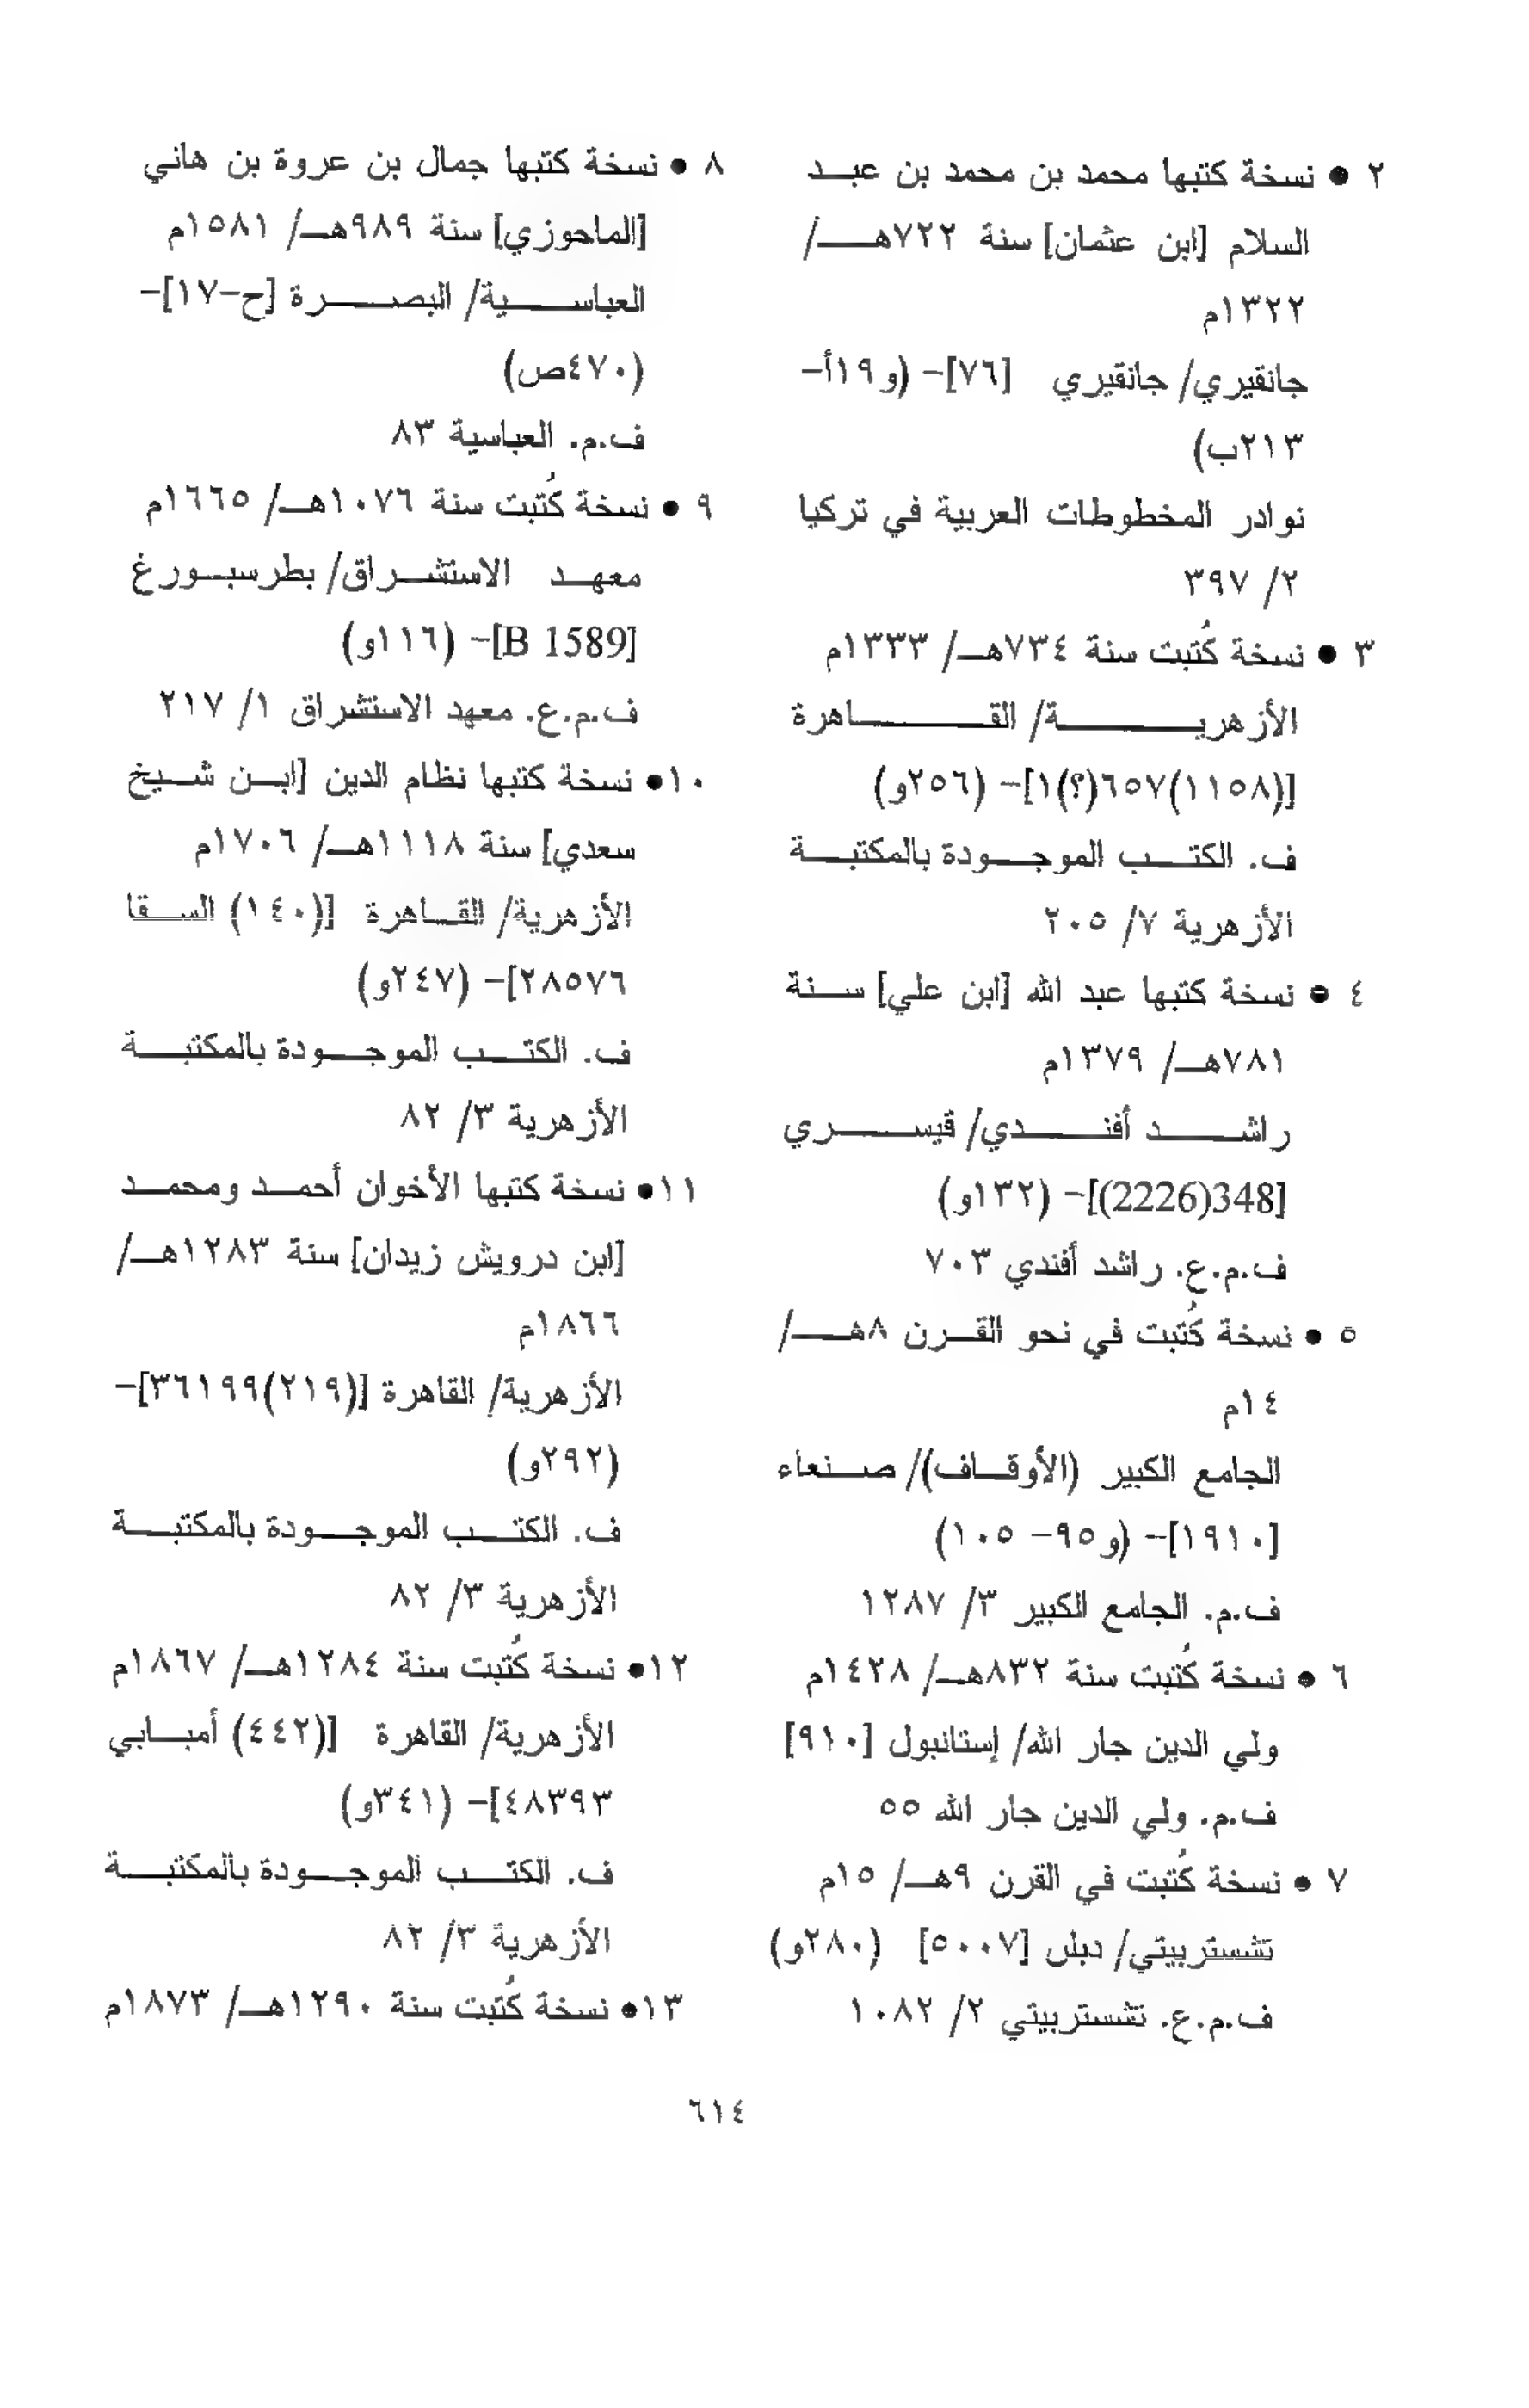 ٢ • نسخة كتبها محمد بن محمد بن عبد
السلام [ابن عثمان] سنة ٧٢٢هـ/
١٣٢٢م
جانقيري/ جانقيري [٧٦]- (و١٩أ-
٢١٣ب)
نوادر المخطوطات العربية في تركيا
٢/ ٣٩٧
٣ • نسخة كُتبت سنة ٧٣٤هـ/ ١٣٣٣م
الأزهرية/ القاهرة
[(١١٥٨)٦٥٧(؟)١]- (٢٥٦و)
ف. الكتب الموجودة بالمكتبة
الأزهرية ٧/ ٢٠٥
٤ • نسخة كتبها عبد الله [ابن علي] سنة
٧٨١هـ/ ١٣٧٩م
راشد أفندي/ قيسري
[348(2226)]- (١٣٢و)
ف.م.ع. راشد أفندي ٧٠٣
٥ • نسخة كُتبت في نحو القرن ٨هـ/
١٤م
الجامع الكبير (الأوقاف)/ صنعاء
[١٩١٠]- (و٩٥- ١٠٥)
ف.م. الجامع الكبير ٣/ ١٢٨٧
٦ • نسخة كُتبت سنة ٨٣٢هـ/ ١٤٢٨م
ولي الدين جار الله/ إستانبول [٩١٠]
ف.م. ولي الدين جار الله ٥٥
٧ • نسخة كُتبت في القرن ٩هـ/ ١٥م
تشستربيتي/ دبلن [٥٠٠٧] (٢٨٠و)
ف.م.ع. تشستربيتي ٢/ ١٠٨٢
٨ • نسخة كتبها جمال بن عروة بن هاني
[الماحوزي] سنة ٩٨٩هـ/ ١٥٨١م
العباسية/ البصرة [ح-١٧]-
(٤٧٠ص)
ف.م. العباسية ٨٣
٩ • نسخة كُتبت سنة ١٠٧٦هـ/ ١٦٦٥م
معهد الاستشراق/ بطرسبورغ
[B 1589]- (١١٦و)
ف.م.ع. معهد الاستشراق ١/ ٢١٧
١٠• نسخة كتبها نظام الدين [ابن شيخ
سعدي] سنة ١١١٨هـ/ ١٧٠٦م
الأزهرية/ القاهرة [(١٤٠) السقا
٢٨٥٧٦]- (٢٤٧و)
ف. الكتب الموجودة بالمكتبة
الأزهرية ٣/ ٨٢
١١• نسخة كتبها الأخوان أحمد ومحمد
[ابن درويش زيدان] سنة ١٢٨٣هـ/
١٨٦٦م
الأزهرية/ القاهرة [(٢١٩)٣٦١٩٩]-
(٢٩٢و)
ف. الكتب الموجودة بالمكتبة
الأزهرية ٣/ ٨٢
١٢• نسخة كُتبت سنة ١٢٨٤هـ/ ١٨٦٧م
الأزهرية/ القاهرة [(٤٤٢) أمبابي
٤٨٣٩٣]- (٣٤١و)
ف. الكتب الموجودة بالمكتبة
الأزهرية ٣/ ٨٢
١٣• نسخة كُتبت سنة ١٢٩٠هـ/ ١٨٧٣م
٦١٤